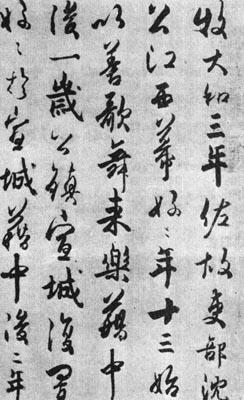 牧大和三年佐故吏部沈
公江西幕好〻年十三始
以善歌舞来樂籍中
後一歲公鎮宣城復置
好〻於宣城籍中後二年